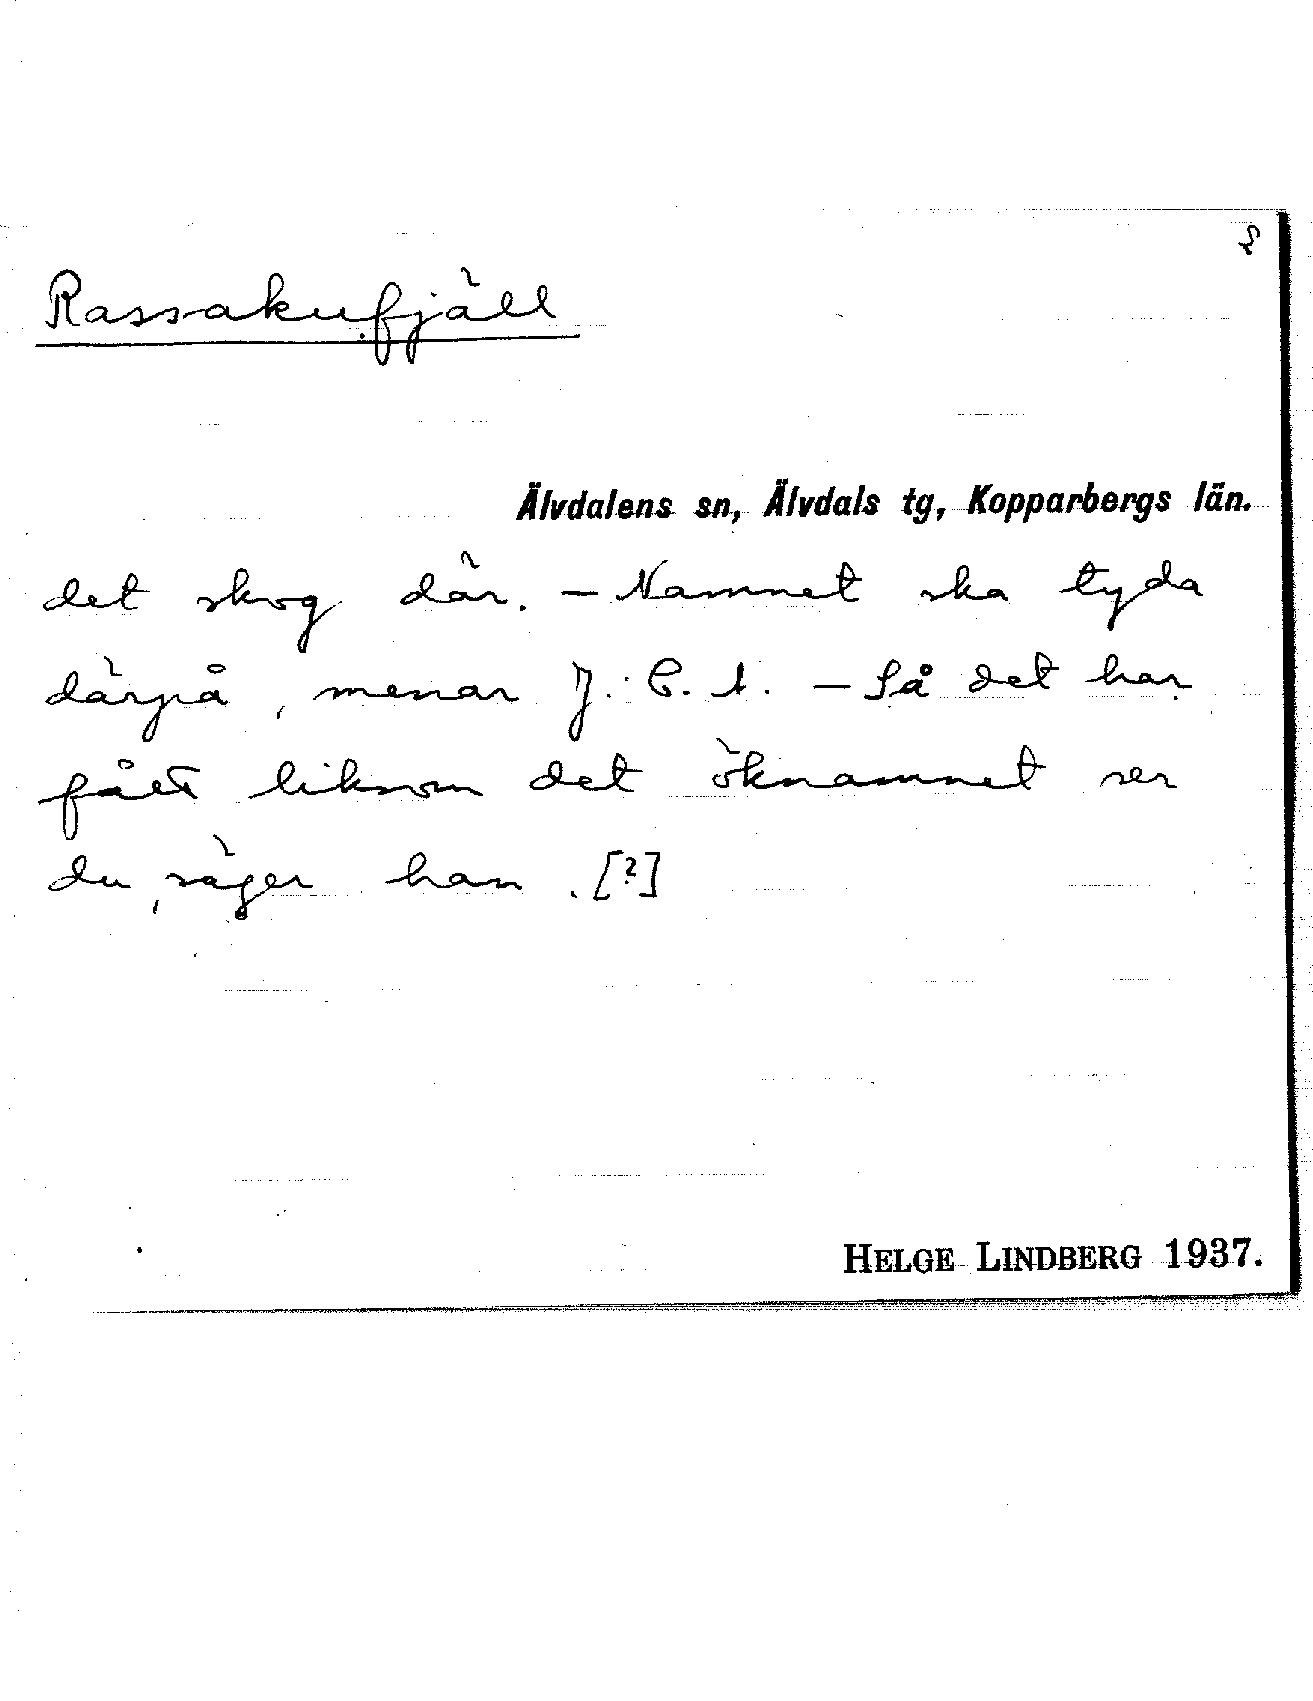 Rassakufjäll
Älvdalens sn, Älvdals tg, Kopparbergs län.
det skog där. – Namnet ska tyda
därpå, menar J. C. A. – Så det har
fått liksom det öknamnet ser
du, säger han. [?]
HELGE LINDBERG 1937.